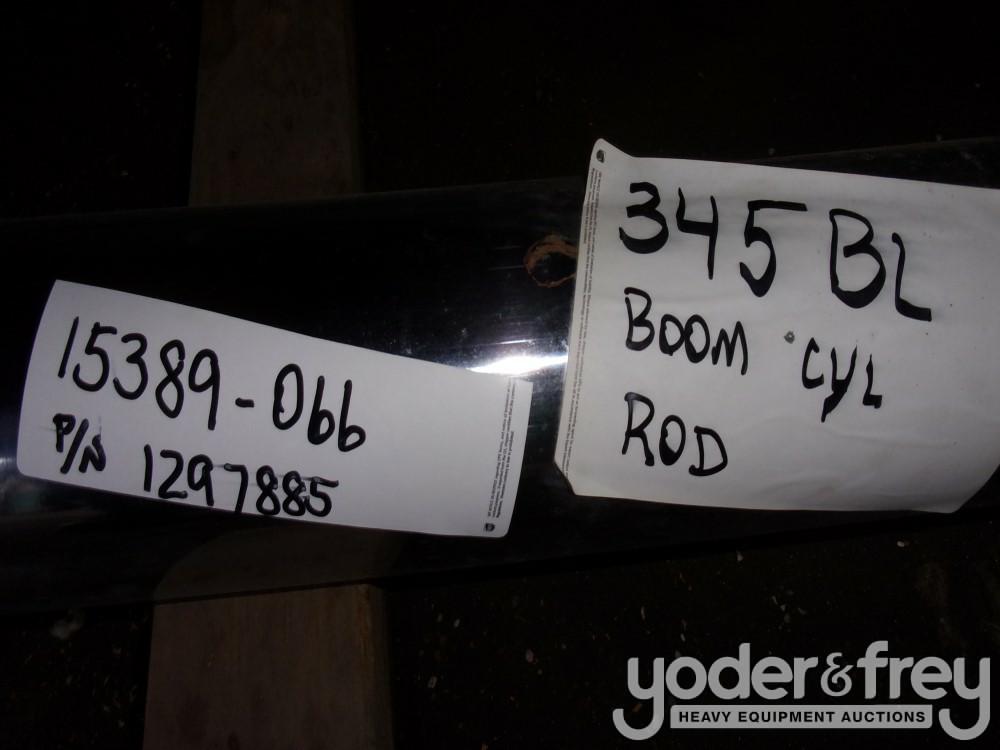 15389-066
P/N 1297885
345 BL
BOOM CYL
ROD
yoder&frey
HEAVY EQUIPMENT AUCTIONS